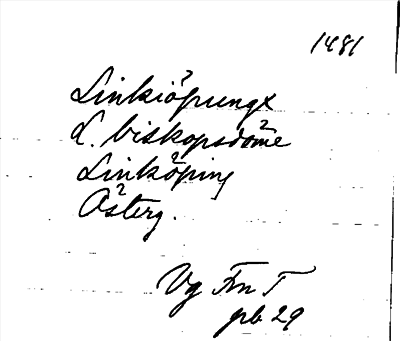 1481
Linkiöpungx
L. biskopsdöme
Linköping
Österg.
Vg Fn T
pb 29